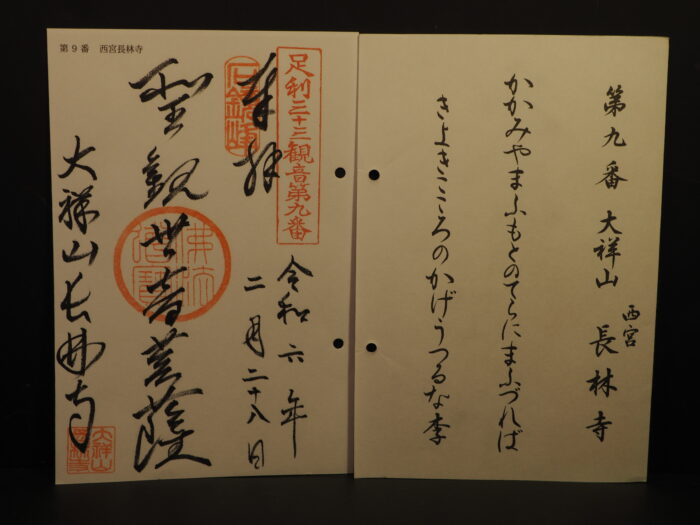 第九番 大祥山 西宮 長林寺
かかみやまふもとのてらにまふづれば
きよきこころのかげうつるな李
第9番 西宮長林寺
足利三十三観音第九番
令和六年
二月二十八日
奉拝
聖観世音菩薩
佛法僧寶
大祥山長林寺